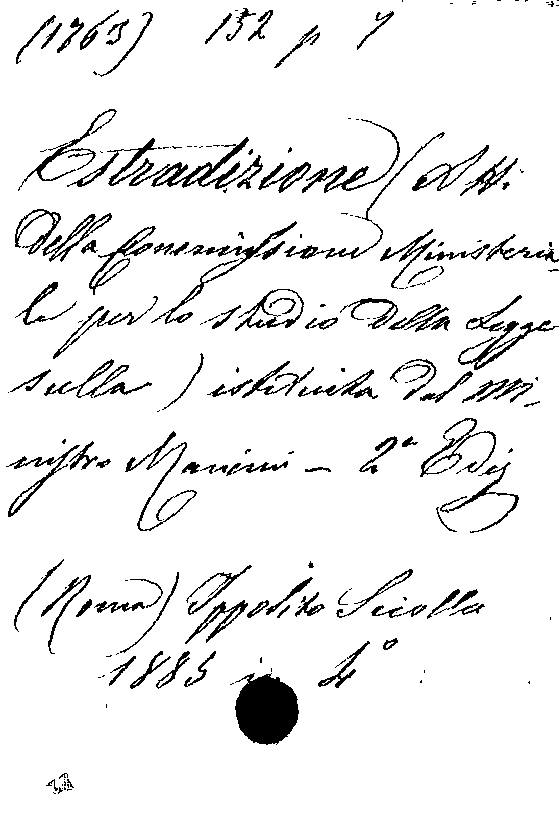 (1763) 152 p 7
Estradizione (Atti
della Commissione Ministeria-
le per lo studio della Legge
sulla) istituita dal Mi-
nistro Mancini - 2ª Ediz
(Roma) Ippolito Sciolla
1885 in 4º